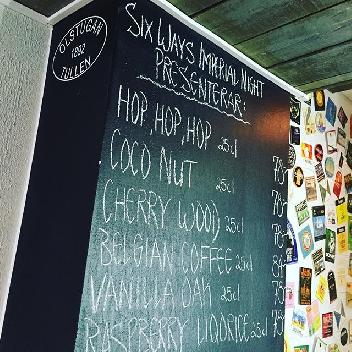 ÖLSTUGAN
1892
TULLEN
SIX WAYS IMPERIAL NIGHT
PRESENTERAR:
HOP, HOP, HOP 25cl 78:-
COCO NUT 25cl 78:-
CHERRY WOOD 25cl 78:-
BELGIAN COFFEE 25cl 84:-
VANILLA OAK 25cl 78:-
RASPBERRY LIQORICE 25cl